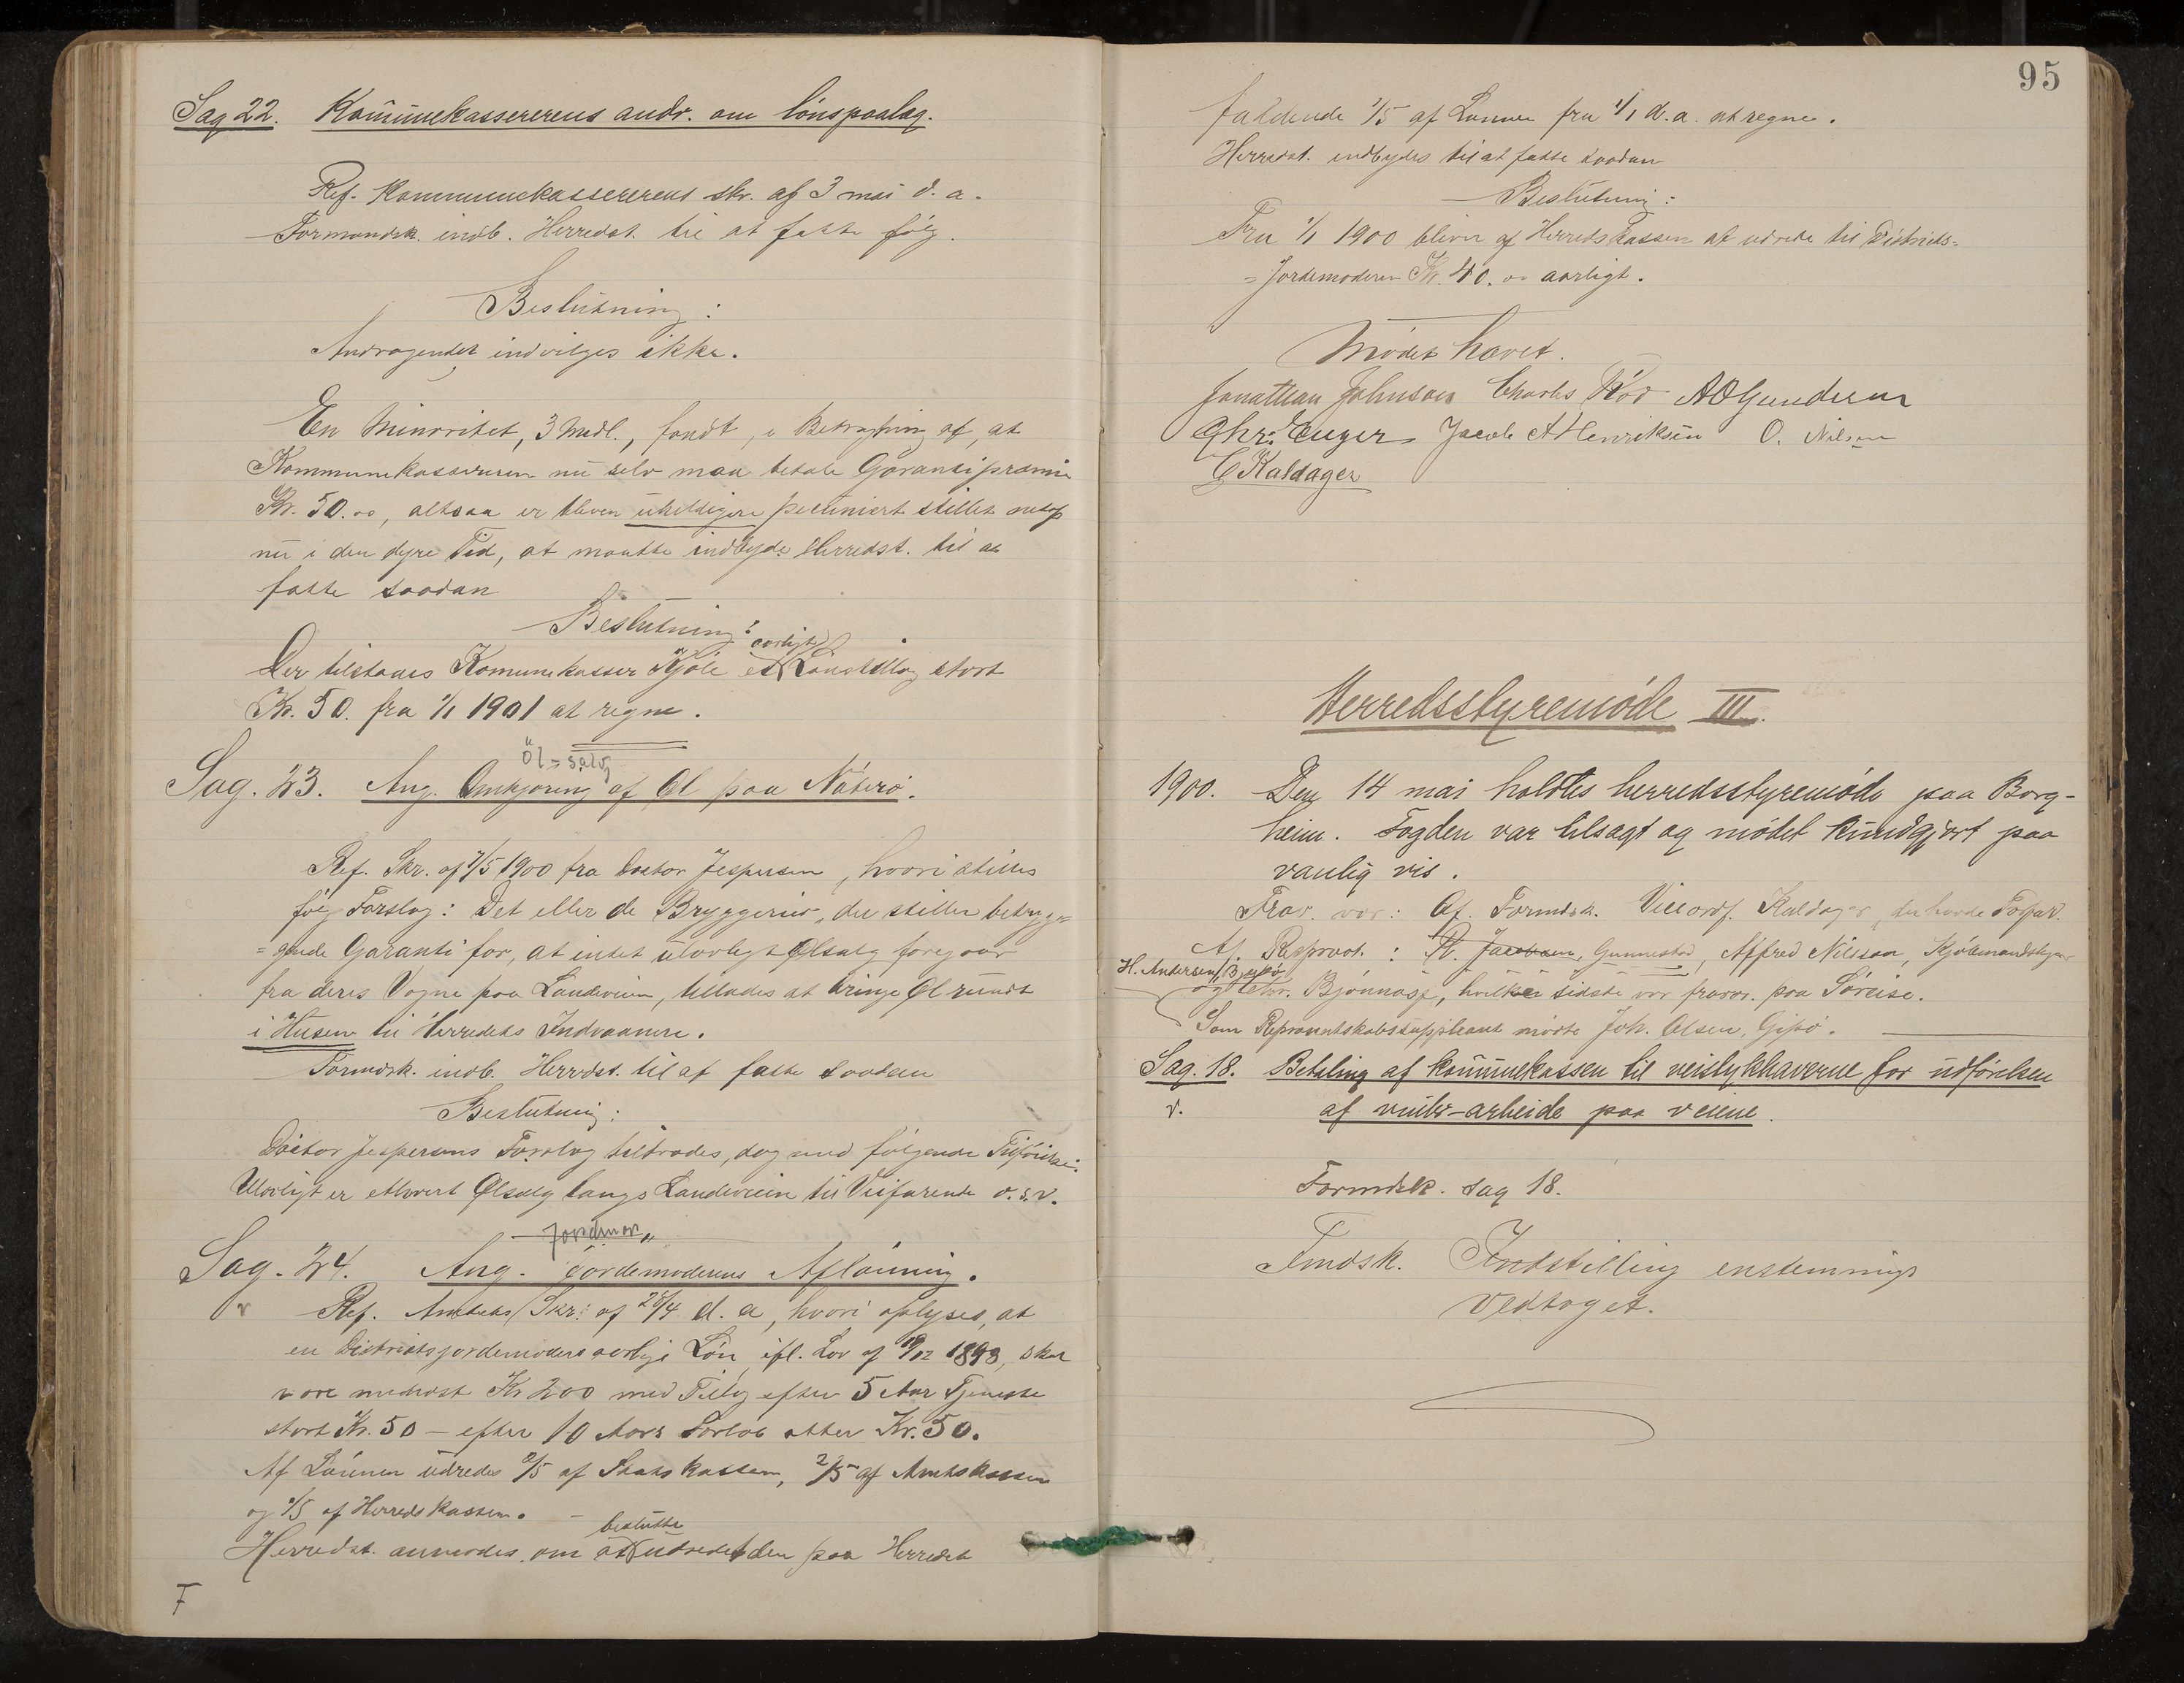 Sag 22. Kommunekassererens andr. om lønspaalæg.
Ref. Kommunekassererens skr. af 3 mai d. a.
Formandsk. indb. Herredst. til at fatte følg.
Beslutning:
Andragendet indvilges ikke.
En Minoritet, 3 Medl., fandt, i Betragtning af, at
Kommunekassereren nu selv maa betale Garantipræmie
Kr. 50.00, altsaa er bleven uheldigere pecuniert stillet netop
nu i den dyre Tid, at maatte indbyde Herredst. til at
fatte saadan
Beslutning:
aarligt
Der tilstaaes Komunekasser Kjøle et Lønstillæg stort
Kr. 50. fra 1/1 1901 at regne.
Öl-salg
Sag. 23. Ang. Omkjøring af Øl paa Nøterø.
Ref. Skr. af 7/5 1900 fra Doctor Jespersen, hvori stilles
følg. Forslag: Det eller de Bryggerier, der stiller betryg-
=gende Garanti for, at intet ulovligt Ølsalg foregaar
fra deres Vogne paa Landeveien, tillades at bringe Øl rundt
i Husene til Herredets Indvaanere.
Formdsk. indb. Herrdst. til at fatte saadan
Beslutning:
Doctor Jespersens Forslag tiltrædes, dog med følgende Tilføielse:
Ulovligt er ethvert Ølsalg langs Landeveien til Veifarende o.s.v.
Jordmor
Sag. 24. Ang. jordemoderens Aflønning.
v Ref. Amtets Skr. af 28/4 d. a, hvori oplyses, at
en Distriktsjordemoders aarlige Løn, ifl. Lov af 19/12 1898, skal
være mindst Kr 200 med Tillæg efter 5 Aar Tjeneste
stort Kr. 50 — efter 10 Aars Forløb atter Kr. 50.
Af Lønnen udredes 2/5 af Statskassen, 2/5 af Amtskassen
og 1/5 af Herredskassen. —
beslutte
Herredst. anmodes om at udrede den paa Herredet
F
95
faldende 1/5 af Lønnen fra 1/1 d.a. at regne.
Herredst. indbydes til at fatte saadan
Beslutning:
Fra 1/1 1900 bliver af Herredskassen at udrede til Distrikts-
=Jordemoderen Kr. 40.00 aarligt.
Mødet hævet.
Jonathan Johnsen Charles Rød A O Gundersen
Chr. Unger Jacob A Henriksen O. Nilsen
C Kaldager
Herredsstyremøde III.
1900. Den 14 mai holdtes herredsstyremøde paa Borg-
heim. Fogden var tilsagt og mødet kundgjort paa
vanlig vis.
Frav. var: Af Formdsk. Viceordf. Kaldager, der havde Forfald.
Af Repræst.: R. Jacobsen, Gunnestad, Alfred Nilssen, Kjölmandskjær
H. Andersen,
og Chr. Bjønnæs, hvilken sidste var fravær. paa Søreise.
Som Repræsentskabssuppleant mødte Joh. Olsen, Gipø.
Sag. 18. Betaling af kommunekassen til veistykkhaverne for udførelsen
v. af vinter-arbeide paa veiene.
Formdsk. sag 18.
Fmdsk. Indstilling enstemmigt
vedtaget.